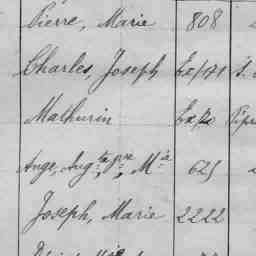 Pierre, Marie 808
Charles, Joseph Ex/171
Mathurin
Ange, Aug.te, p.re, M.a 625
Joseph, Marie 2222